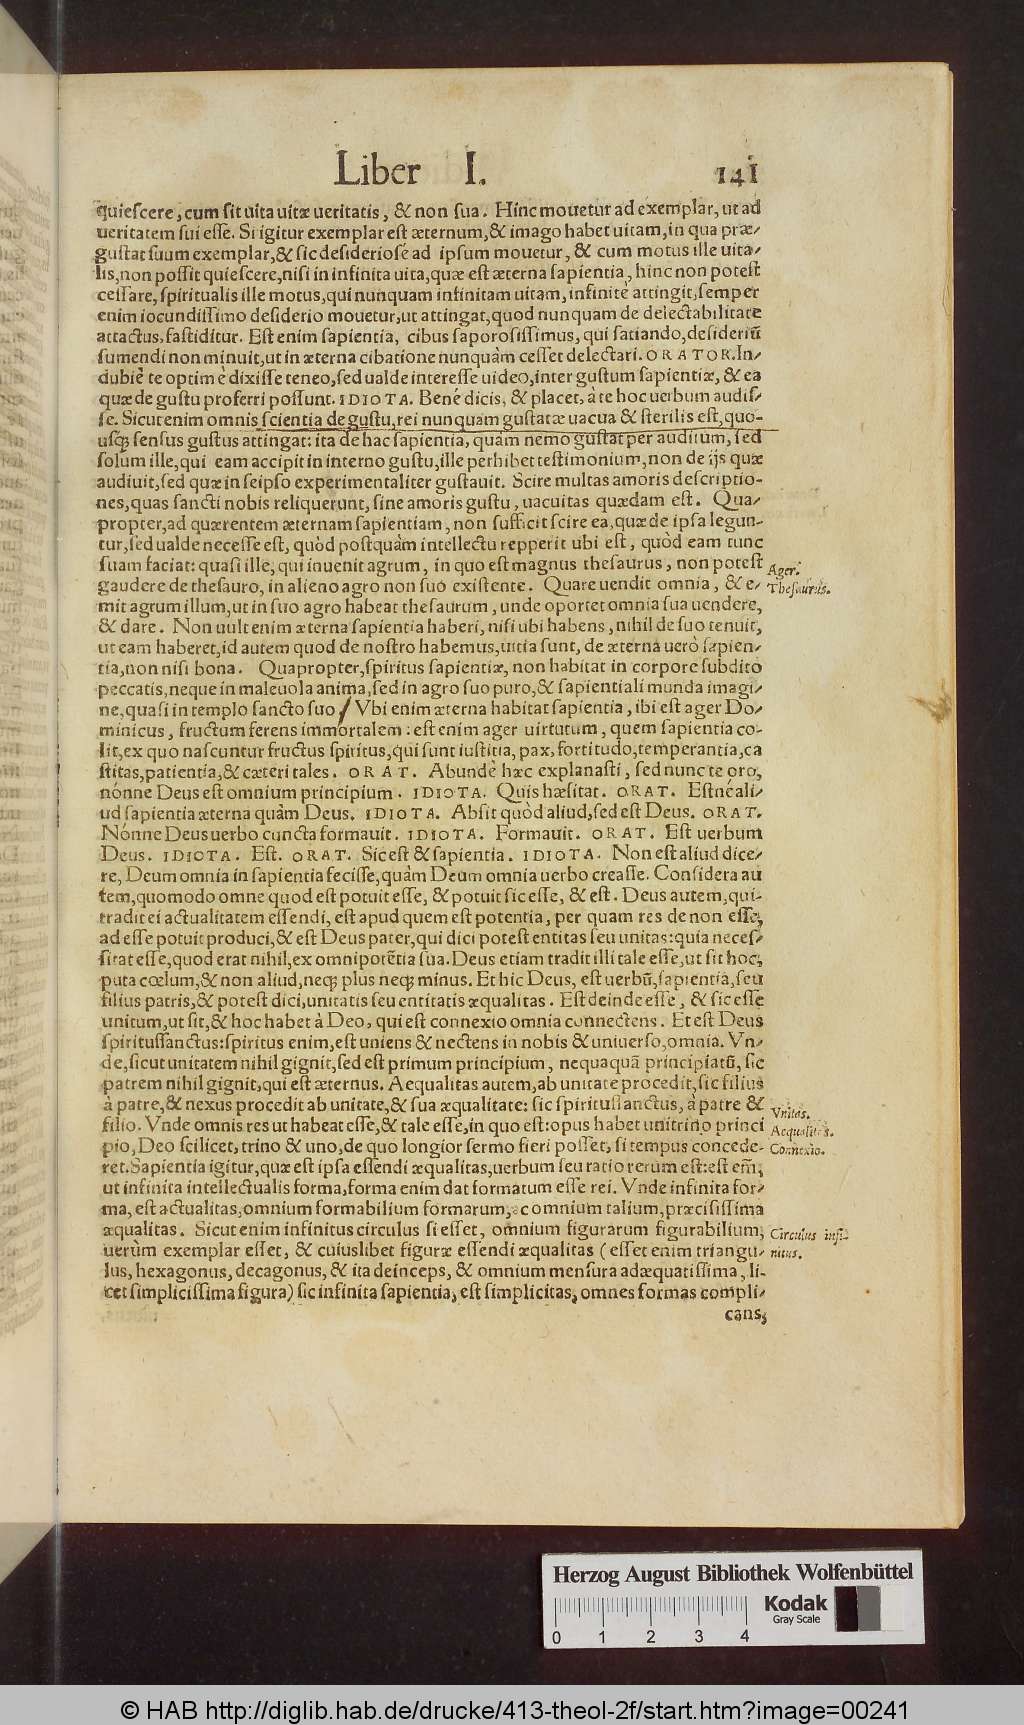 Liber I. 141
quiescere, cum sit uita uitæ ueritatis, & non sua. Hinc mouetur ad exemplar, ut ad
ueritatem sui esse. Si igitur exemplar est æternum, & imago habet uitam, in qua præ-
gustat suum exemplar, & sic desideriosè ad ipsum mouetur, & cum motus ille uita-
lis, non possit quiescere, nisi in infinita uita, quæ est æterna sapientia, hinc non potest
cessare, spiritualis ille motus, qui nunquam infinitam uitam, infinitè attingit, semper
enim iocundissimo desiderio mouetur, ut attingat, quod nunquam de delectabilitate
attactus, fastiditur. Est enim sapientia, cibus saporosissimus, qui satiando, desideriū
sumendi non minuit, ut in æterna cibatione nunquàm cesset delectari. ORATOR. In-
dubiè te optimè dixisse teneo, sed ualde interesse uideo, inter gustum sapientiæ, & ea
quæ de gustu proferri possunt. IDIOTA. Bené dicis, & placet, à te hoc uerbum audis-
se. Sicut enim omnis scientia de gustu, rei nunquam gustatæ uacua & sterilis est, quo-
usq; sensus gustus attingat: ita de hac sapientia, quàm nemo gustat per auditum, sed
solùm ille, qui eam accipit in interno gustu, ille perhibet testimonium, non de ijs quæ
audiuit, sed quæ in seipso experimentaliter gustauit. Scire multas amoris descriptio-
nes, quas sancti nobis reliquerunt, sine amoris gustu, uacuitas quædam est. Qua-
propter, ad quærentem æternam sapientiam, non sufficit scire ea, quæ de ipsa legun-
tur, sed ualde necesse est, quòd postquàm intellectu repperit ubi est, quòd eam tunc
suam faciat: quasi ille, qui inuenit agrum, in quo est magnus thesaurus, non potest
gaudere de thesauro, in alieno agro non suo existente. Quare uendit omnia, & e-
mit agrum illum, ut in suo agro habeat thesaurum, unde oportet omnia sua uendere,
& dare. Non uult enim æterna sapientia haberi, nisi ubi habens, nihil de suo tenuit,
ut eam haberet, id autem quod de nostro habemus, uitia sunt, de æterna uerò sapien-
tia, non nisi bona. Quapropter, spiritus sapientiæ, non habitat in corpore subdito
peccatis, neque in maleuola anima, sed in agro suo puro, & sapientiali munda imagi-
ne, quasi in templo sancto suo / Vbi enim æterna habitat sapientia, ibi est ager Do-
minicus, fructum ferens immortalem: est enim ager uirtutum, quem sapientia co-
lit, ex quo nascuntur fructus spiritus, qui sunt iustitia, pax, fortitudo, temperantia, ca
stitas, patientia, & cæteri tales. ORAT. Abundè hæc explanasti, sed nunc te oro,
nónne Deus est omnium principium. IDIOTA. Quis hæsitat. ORAT. Estnè ali-
ud sapientia æterna quàm Deus. IDIOTA. Absit quòd aliud, sed est Deus. ORAT.
Nónne Deus uerbo cuncta formauit. IDIOTA. Formauit. ORAT. Est uerbum
Deus. IDIOTA. Est. ORAT. Sic est & sapientia. IDIOTA. Non est aliud dice-
re, Deum omnia in sapientia fecisse, quàm Deum omnia uerbo creasse. Considera au
tem, quomodo omne quod est potuit esse, & potuit sic esse, & est. Deus autem, qui
tradit ei actualitatem essendi, est apud quem est potentia, per quam res de non esse,
ad esse potuit produci, & est Deus pater, qui dici potest entitas seu unitas: quia neces-
sitat esse, quod erat nihil, ex omnipotētia sua. Deus etiam tradit illi tale esse, ut sit hoc,
puta cœlum, & non aliud, neq; plus neq; minus. Et hic Deus, est uerbū, sapientia, seu
filius patris, & potest dici, unitatis seu entitatis æqualitas. Est deinde esse, & sic esse
unitum, ut sit, & hoc habet à Deo, qui est connexio omnia connectens. Et est Deus
spiritussanctus: spiritus enim, est uniens & nectens in nobis & uniuerso, omnia. Vn-
de, sicut unitatem nihil gignit, sed est primum principium, nequaquā principiatū, sic
patrem nihil gignit, qui est æternus. Aequalitas autem, ab unitate procedit, sic filius
à patre, & nexus procedit ab unitate, & sua æqualitate: sic spiritussanctus, à patre &
filio. Vnde omnis res ut habeat esse, & tale esse, in quo est: opus habet unitrino princi
pio, Deo scilicet, trino & uno, de quo longior sermo fieri posset, si tempus concede-
ret. Sapientia igitur, quæ est ipsa essendi æqualitas, uerbum seu ratio rerum est: est em̄,
ut infinita intellectualis forma, forma enim dat formatum esse rei. Vnde infinita for-
ma, est actualitas, omnium formabilium formarum, ac omnium talium, præcisissima
æqualitas. Sicut enim infinitus circulus si esset, omnium figurarum figurabilium,
uerùm exemplar esset, & cuiuslibet figuræ essendi æqualitas (esset enim triangu-
lus, hexagonus, decagonus, & ita deinceps, & omnium mensura adæquatissima, li-
cet simplicissima figura) sic infinita sapientia, est simplicitas, omnes formas compli-
cans,
Ager.
Thesaurus.
Vnitas.
Aequalitas.
Connexio.
Circulus infi-
nitus.
Herzog August Bibliothek Wolfenbüttel
Kodak
Gray Scale
0 1 2 3 4
© HAB http://diglib.hab.de/drucke/413-theol-2f/start.htm?image=00241